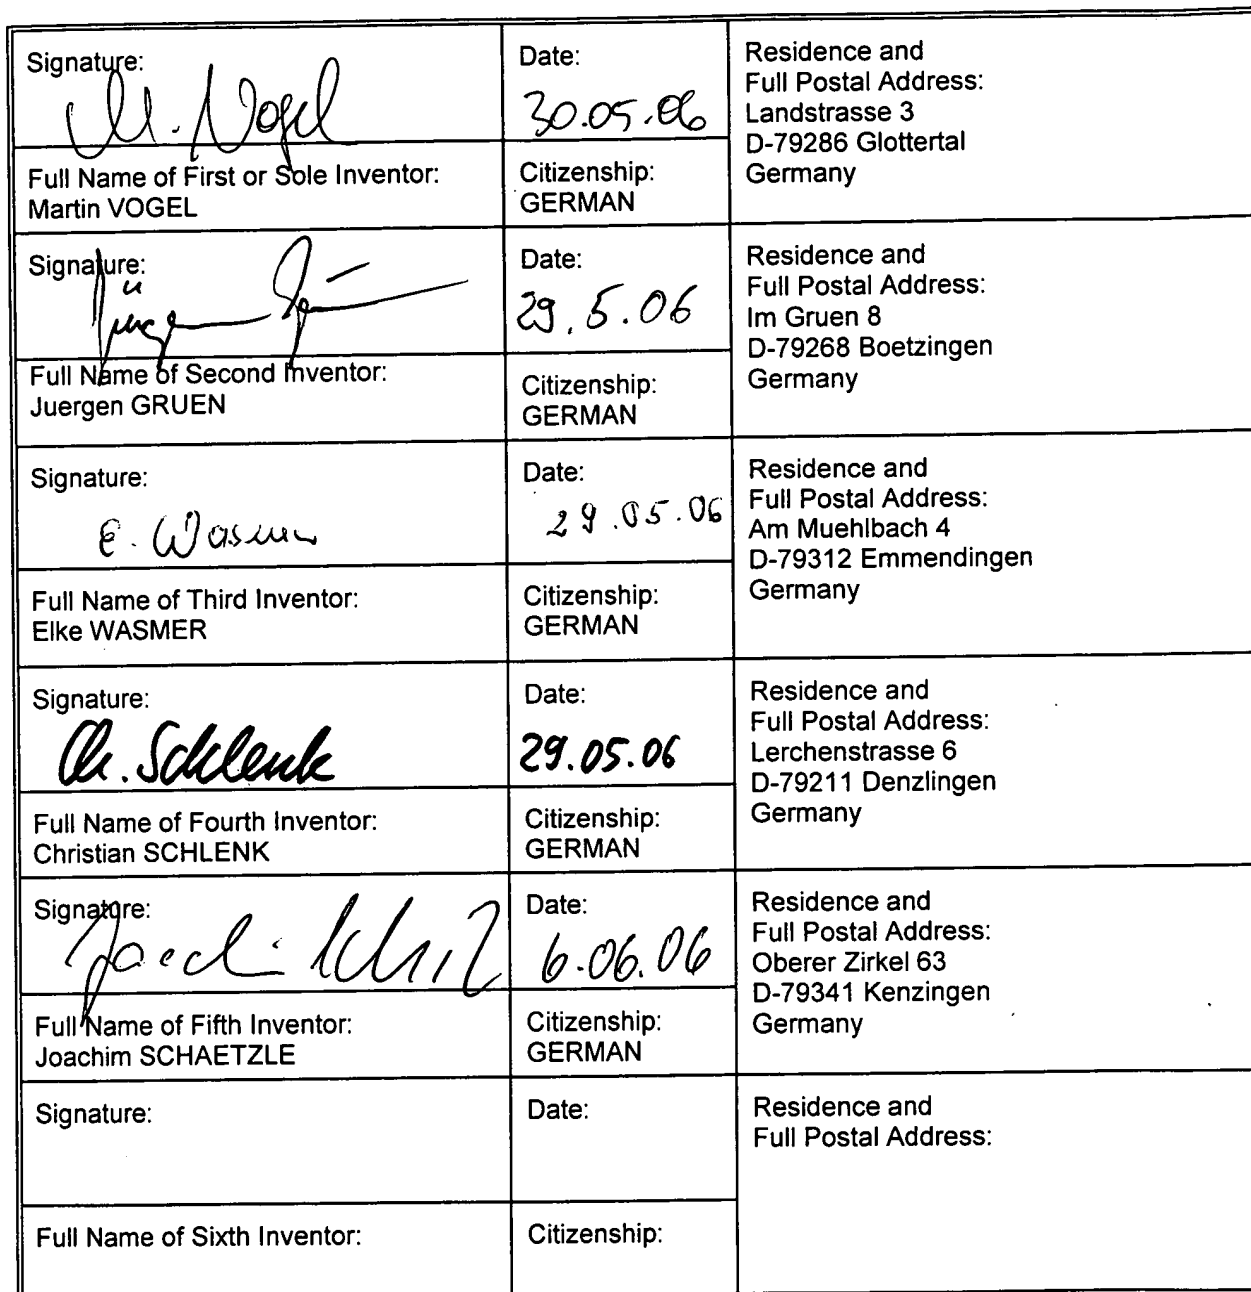 Signature:
M. Vogel
Date:
30.05.06
Residence and
Full Postal Address:
Landstrasse 3
D-79286 Glottertal
Germany
Full Name of First or Sole Inventor:
Martin VOGEL
Citizenship:
GERMAN
Signature:
Jürgen
Date:
29.5.06
Residence and
Full Postal Address:
Im Gruen 8
D-79268 Boetzingen
Germany
Full Name of Second Inventor:
Juergen GRUEN
Citizenship:
GERMAN
Signature:
E. Wasmer
Date:
29.05.06
Residence and
Full Postal Address:
Am Muehlbach 4
D-79312 Emmendingen
Germany
Full Name of Third Inventor:
Elke WASMER
Citizenship:
GERMAN
Signature:
Ch. Schlenk
Date:
29.05.06
Residence and
Full Postal Address:
Lerchenstrasse 6
D-79211 Denzlingen
Germany
Full Name of Fourth Inventor:
Christian SCHLENK
Citizenship:
GERMAN
Signature:
Date:
6.06.06
Residence and
Full Postal Address:
Oberer Zirkel 63
D-79341 Kenzingen
Germany
Full Name of Fifth Inventor:
Joachim SCHAETZLE
Citizenship:
GERMAN
Signature:
Date:
Residence and
Full Postal Address:
Full Name of Sixth Inventor:
Citizenship: